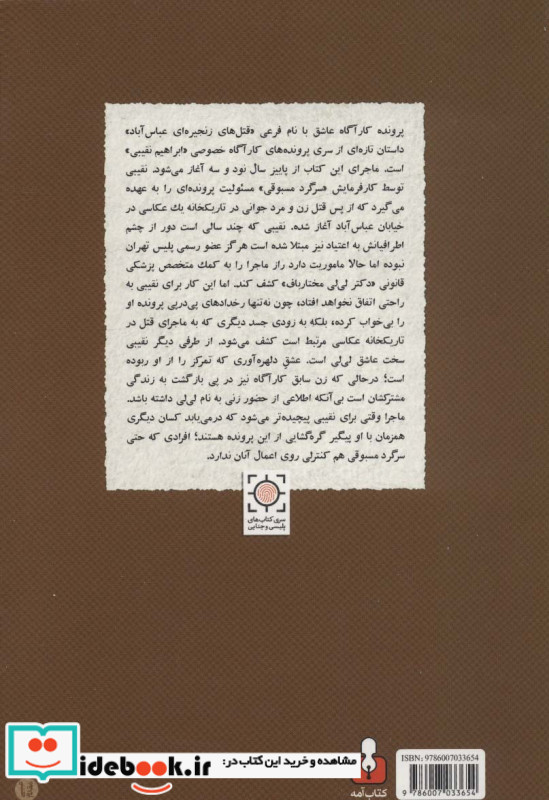 پرونده کارآگاه عاشق با نام فرعی «قتل‌های زنجیره‌ای عباس‌آباد»
داستان تازه‌ای از سری پرونده‌های کارآگاه خصوصی «ابراهیم نقیبی»
است. ماجرای این کتاب از پاییز سال نود و سه آغاز می‌شود. نقیبی
توسط کارفرمایش «سرگرد مسبوقی» مسئولیت پرونده‌ای را به عهده
می‌گیرد که از پس قتل زن و مرد جوانی در تاریکخانه یك عکاسی در
خیابان عباس‌آباد آغاز شده. نقیبی که چند سالی است دور از چشم
اطرافیانش به اعتیاد نیز مبتلا شده است هرگز عضو رسمی پلیس تهران
نبوده اما حالا ماموریت دارد راز ماجرا را به کمك متخصص پزشکی
قانونی «دکتر لی‌لی مختارباف» کشف کند. اما این کار برای نقیبی به
راحتی اتفاق نخواهد افتاد، چون نه‌تنها رخدادهای پی‌درپی پرونده او
را بی‌خواب کرده، بلکه به زودی جسد دیگری که به ماجرای قتل در
تاریکخانه عکاسی مرتبط است کشف می‌شود. از طرفی دیگر نقیبی
سخت عاشق لی‌لی است. عشقِ دلهره‌آوری که تمرکز را از او ربوده
است؛ درحالی که زن سابق کارآگاه نیز در پی بازگشت به زندگی
مشترکشان است بی‌آنکه اطلاعی از حضور زنی به نام لی‌لی داشته باشد.
ماجرا وقتی برای نقیبی پیچیده‌تر می‌شود که درمی‌یابد کسان دیگری
همزمان با او پیگیر گره‌گشایی از این پرونده هستند؛ افرادی که حتی
سرگرد مسبوقی هم کنترلی روی اعمال آنان ندارد.
سری کتاب‌های
پلیسی و جنایی
ISBN: 9786007033654
9 786007 033654
کتاب آمه
مشاهده و خرید این کتاب در:
idebook.ir